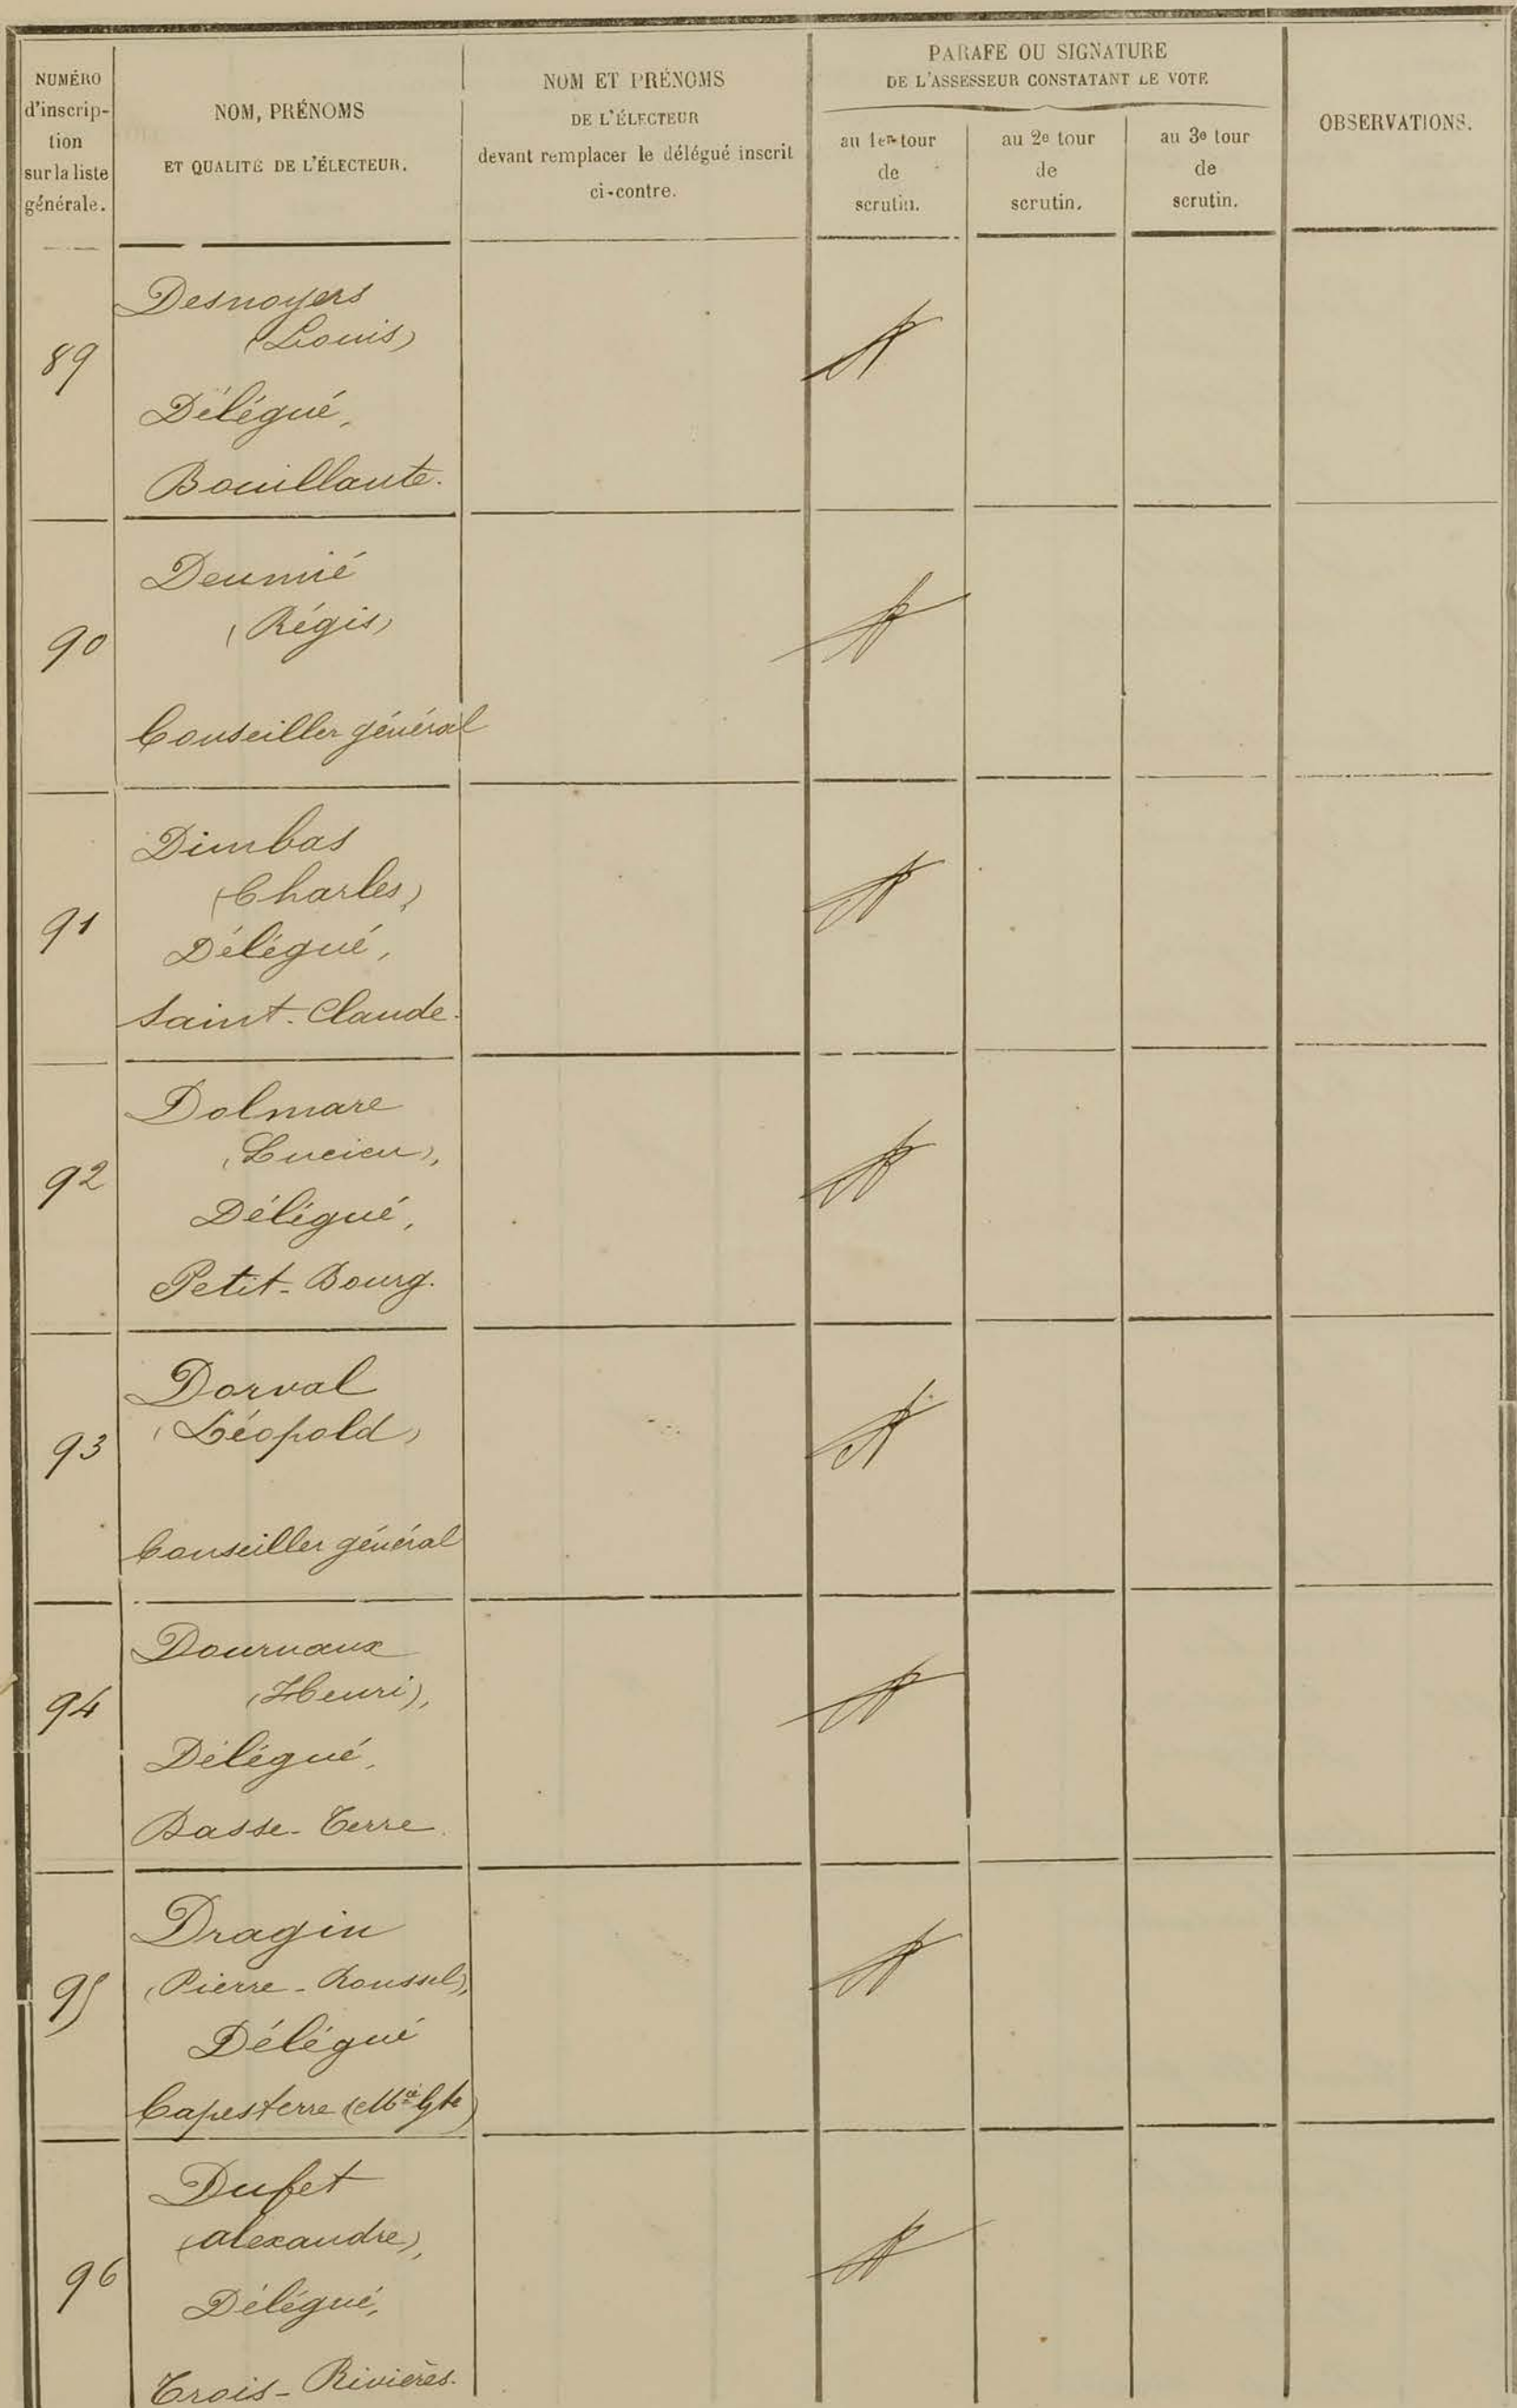 NUMÉRO
d'inscrip-
tion
sur la liste
générale.
NOM, PRÉNOMS
ET QUALITÉ DE L'ÉLECTEUR.
NOM ET PRÉNOMS
DE L'ÉLECTEUR
devant remplacer le délégué inscrit
ci-contre.
PARAFE OU SIGNATURE
DE L'ASSESSEUR CONSTATANT LE VOTE
au 1er tour
de
scrutin.
au 2e tour
de
scrutin.
au 3e tour
de
scrutin.
OBSERVATIONS.
89
Desnoyers
(Louis)
Délégué,
Bouillante.
90
Deumié
(Régis)
Conseiller général
91
Dimbas
(Charles),
Délégué,
Saint-Claude.
92
Dolmare
(Lucien),
Délégué,
Petit-Bourg.
93
Dorval
(Léopold)
Conseiller général
94
Dournaux
(Henri),
Délégué,
Basse-Terre.
95
Dragin
(Pierre-Roussel),
Délégué
Capesterre (Mie Gte)
96
Dufet
(Alexandre),
Délégué,
Trois-Rivières.